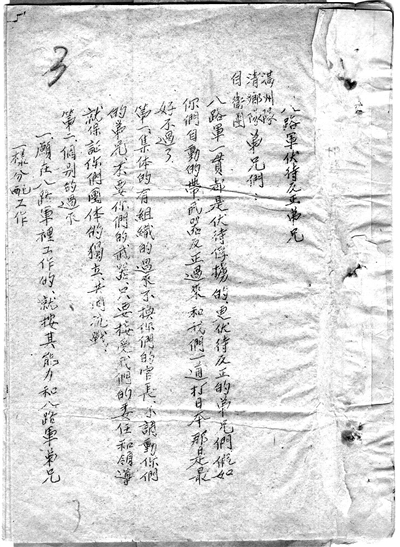 3
八路軍伏待反正弟兄
滿州隊
清鄉隊
自衛團
弟兄們：
八路軍一貫都是伏待俘擄的更伏待反正的弟兄們假如
你們自動的帶武器反正過來和我們一道打日本那是最
好不過了
第一、集体的有組織的過來不換你們的官長不調動你們
的弟兄不要你們的武器只要接受我們的委任和領導
就保証你們團体的獨立共同抗戰
第二個別的過來
一願在八路軍裡工作的、就按其能力和八路軍弟兄
一樣分配工作